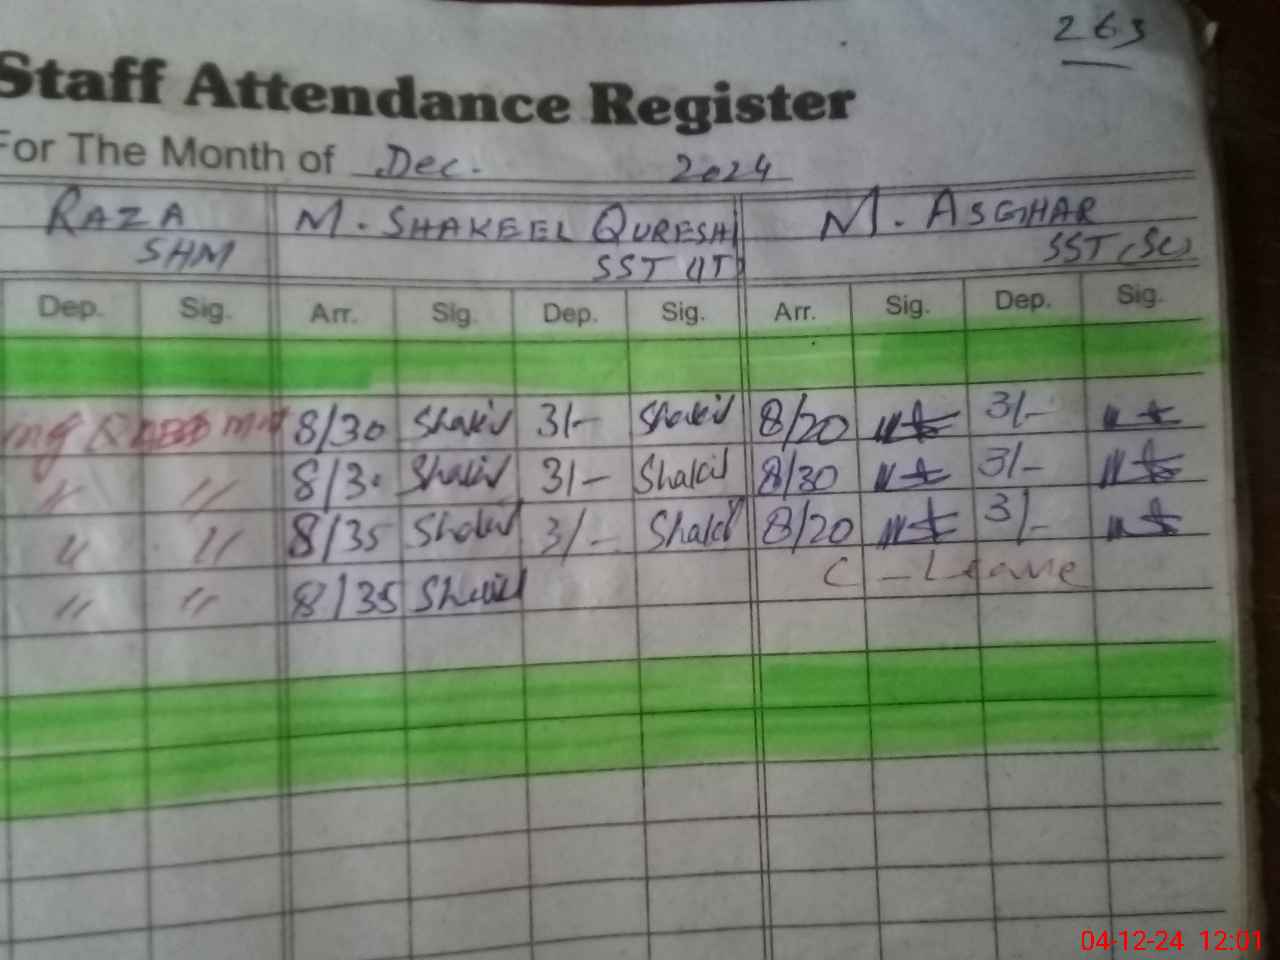 263
Staff Attendance Register
For The Month of Dec. 2024
RAZA M. SHAKEEL QURESHI M. ASGHAR
SHM SST (IT) SST (SC)
Dep. Sig. Arr. Sig. Dep. Sig. Arr. Sig. Dep. Sig.
8/30 Shakil 3/- Shakil 8/20 3/-
" " 8/30 Shakil 3/- Shakil 8/30 3/-
" " 8/35 Shakil 3/- Shakil 8/20 3/-
" " 8/35 Shakil C-Leave
04-12-24 12:01